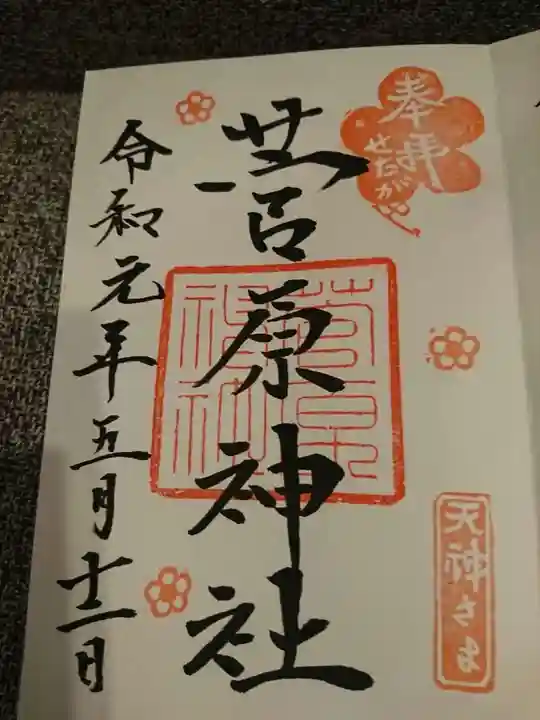 奉拝
せたがや
菅原神社
菅原神社
天神さま
令和元年五月十二日